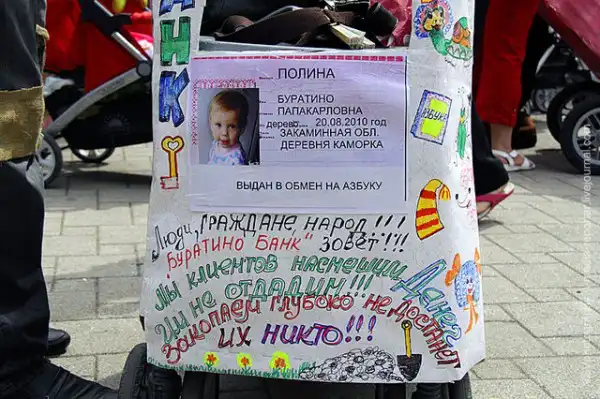 АНК
ПОЛИНА
БУРАТИНО
ПАПАКАРЛОВНА
дерево 20.08.2010 год
ЗАКАМИННАЯ ОБЛ.
ДЕРЕВНЯ КАМОРКА
ВЫДАН В ОБМЕН НА АЗБУКУ
Люди, ГРАЖДАНЕ, НАРОД!!!!
"БУРАТИНО БАНК" ЗОВЁТ!!!
Мы КЛИЕНТОВ НАСМЕШИМ
Им НЕ ОТДАДИМ! Денег
ЗАКОПАЕМ ГЛУБОКО НЕ ДОСТАНЕТ
ИХ НИКТО!!!